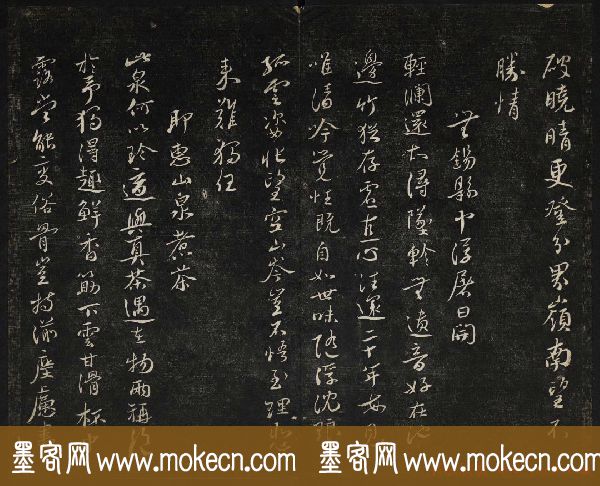 破曉晴更登分界嶺南望不
勝情
無錫縣中浮屠日開
輕瀾還古潯墜軫無遺音好在池
邊竹猶存虛直心往還二十年
唯清吟覺性既自如世味隨浮沈
孤雲姿悵望空山岑豈不悟至理
來難獨任
即惠山泉煮茶
此泉何以珍適與真茶遇在物兩稱
於予獨得趣鮮香筯下雲甘滑杯
露當能變俗骨豈特湔塵慮
墨客网 www.mokecn.com 墨客网 www.mokecn.com